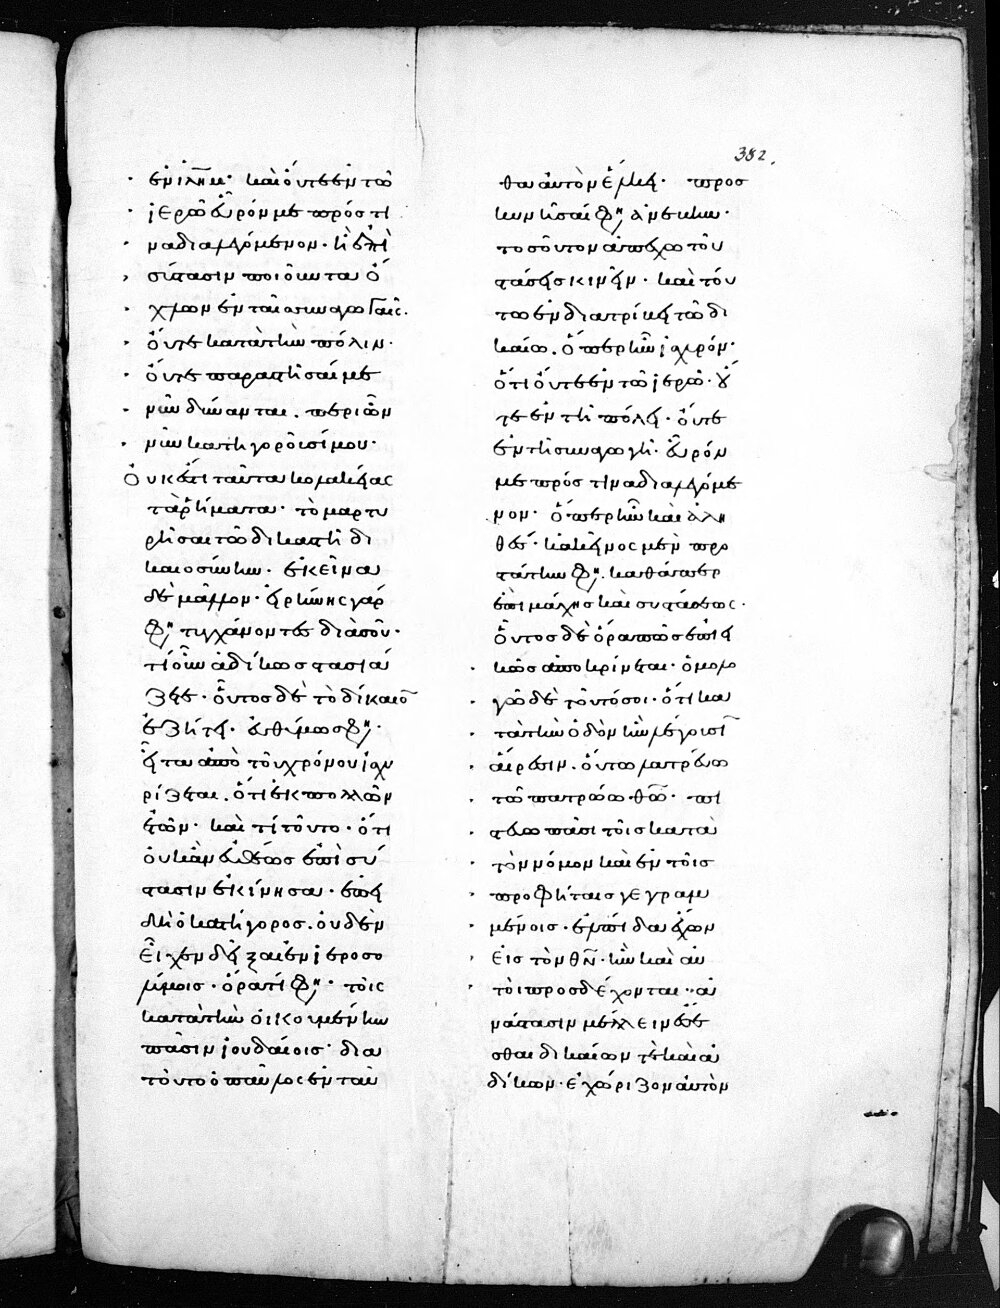 382.
ἐν ἱλημ· καὶ οὔτε ἐν τῶ
ἱερῶ εὗρόν με πρός τι
να διαλεγόμενον· ἢ ἐπὶ
σύστασιν ποιοῦντα ὄ
χλων ἐν ταῖς συναγωγαῖς·
οὔτε κατὰ τὴν πόλιν·
οὔτε παραστῆσαί με
νῦν δύνανται. περὶ ὧν
νῦν κατηγοροῦσί μου·
Οὐκέτι ταῦτα κολακείας
τὰ ῥήματα· τὸ μαρτυ
ρῆσαι τῶ δικαστῆ δι
καιοσύνην. ἐκεῖνα
δὲ μᾶλλον· εἰρήνης γάρ
φη τυγχάνοντες διὰ σοῦ·
τί οὖν ἀδίκως στασιά
ζετε· οὗτος δὲ τὸ δίκαιον
ἐζήτει· εὐθύμως φη·
εἶτα ἀπὸ τοῦ χρόνου ἰσχυ
ρίζεται. ὅτι ἐκ πολλῶν
ἐτῶν· καὶ τί τοῦτο· ὅτι
οὐκ ἂν εὐθέως ἐπὶ σύ
στασιν ἐκίνησα· ἐπεὶ
δὴ ὁ κατήγορος. οὐδὲν
εἶχεν δεῖξαι ἐν ἱεροσο
λύμοις· ὅρα τί φη· τοῖς
κατὰ τὴν οἰκουμένην
πᾶσιν ἰουδαίοις· διὰ
τοῦτο ὁ παῦλος ἐνταῦ
θα αὐτὸν ἕλκει· προσ
κυνῆσαί φη, ἀνέβην·
τοσοῦτον ἀπέχω τοῦ
στάσεις κινεῖν· καὶ τού
τω ἐνδιατρίβει τῶ δι
καίω. ὅπερ ἦν ἰσχυρόν·
ὅτι οὔτε ἐν τῶ ἱερῶ· οὔ
τε ἐν τῆ πόλει· οὔτε
ἐν τῆ συναγωγῆ· εὗρόν
με πρός τινα διαλεγόμε
νον· ὅπερ ἦν καὶ ἀλη
θές· κἀκεῖνος μὲν προ
στάτην φη. καθάπερ
ἐπὶ μάχης καὶ συστάσεως·
οὗτος δὲ ὅρα πῶς ἐπιει
κῶς ἀποκρίνεται· ὁμολο
γῶ δὲ τοῦτό σοι· ὅτι κα
τὰ τὴν ὁδὸν ἣν λέγουσιν
αἵρεσιν. οὕτω λατρεύω
τῶ πατρώω θῶ· πι
στεύω πᾶσι τοῖς κατὰ
τὸν νόμον καὶ ἐν τοῖς
προφήταις γεγραμ
μένοις· ἐλπίδα ἔχων
εἰς τὸν θν· ἣν καὶ αὐ
τοὶ προσδέχονται· ἀ
νάστασιν μέλλειν ἔσε
σθαι δικαίων τὲ καὶ ἀ
δίκων· ἐχώριζον αὐτὸν